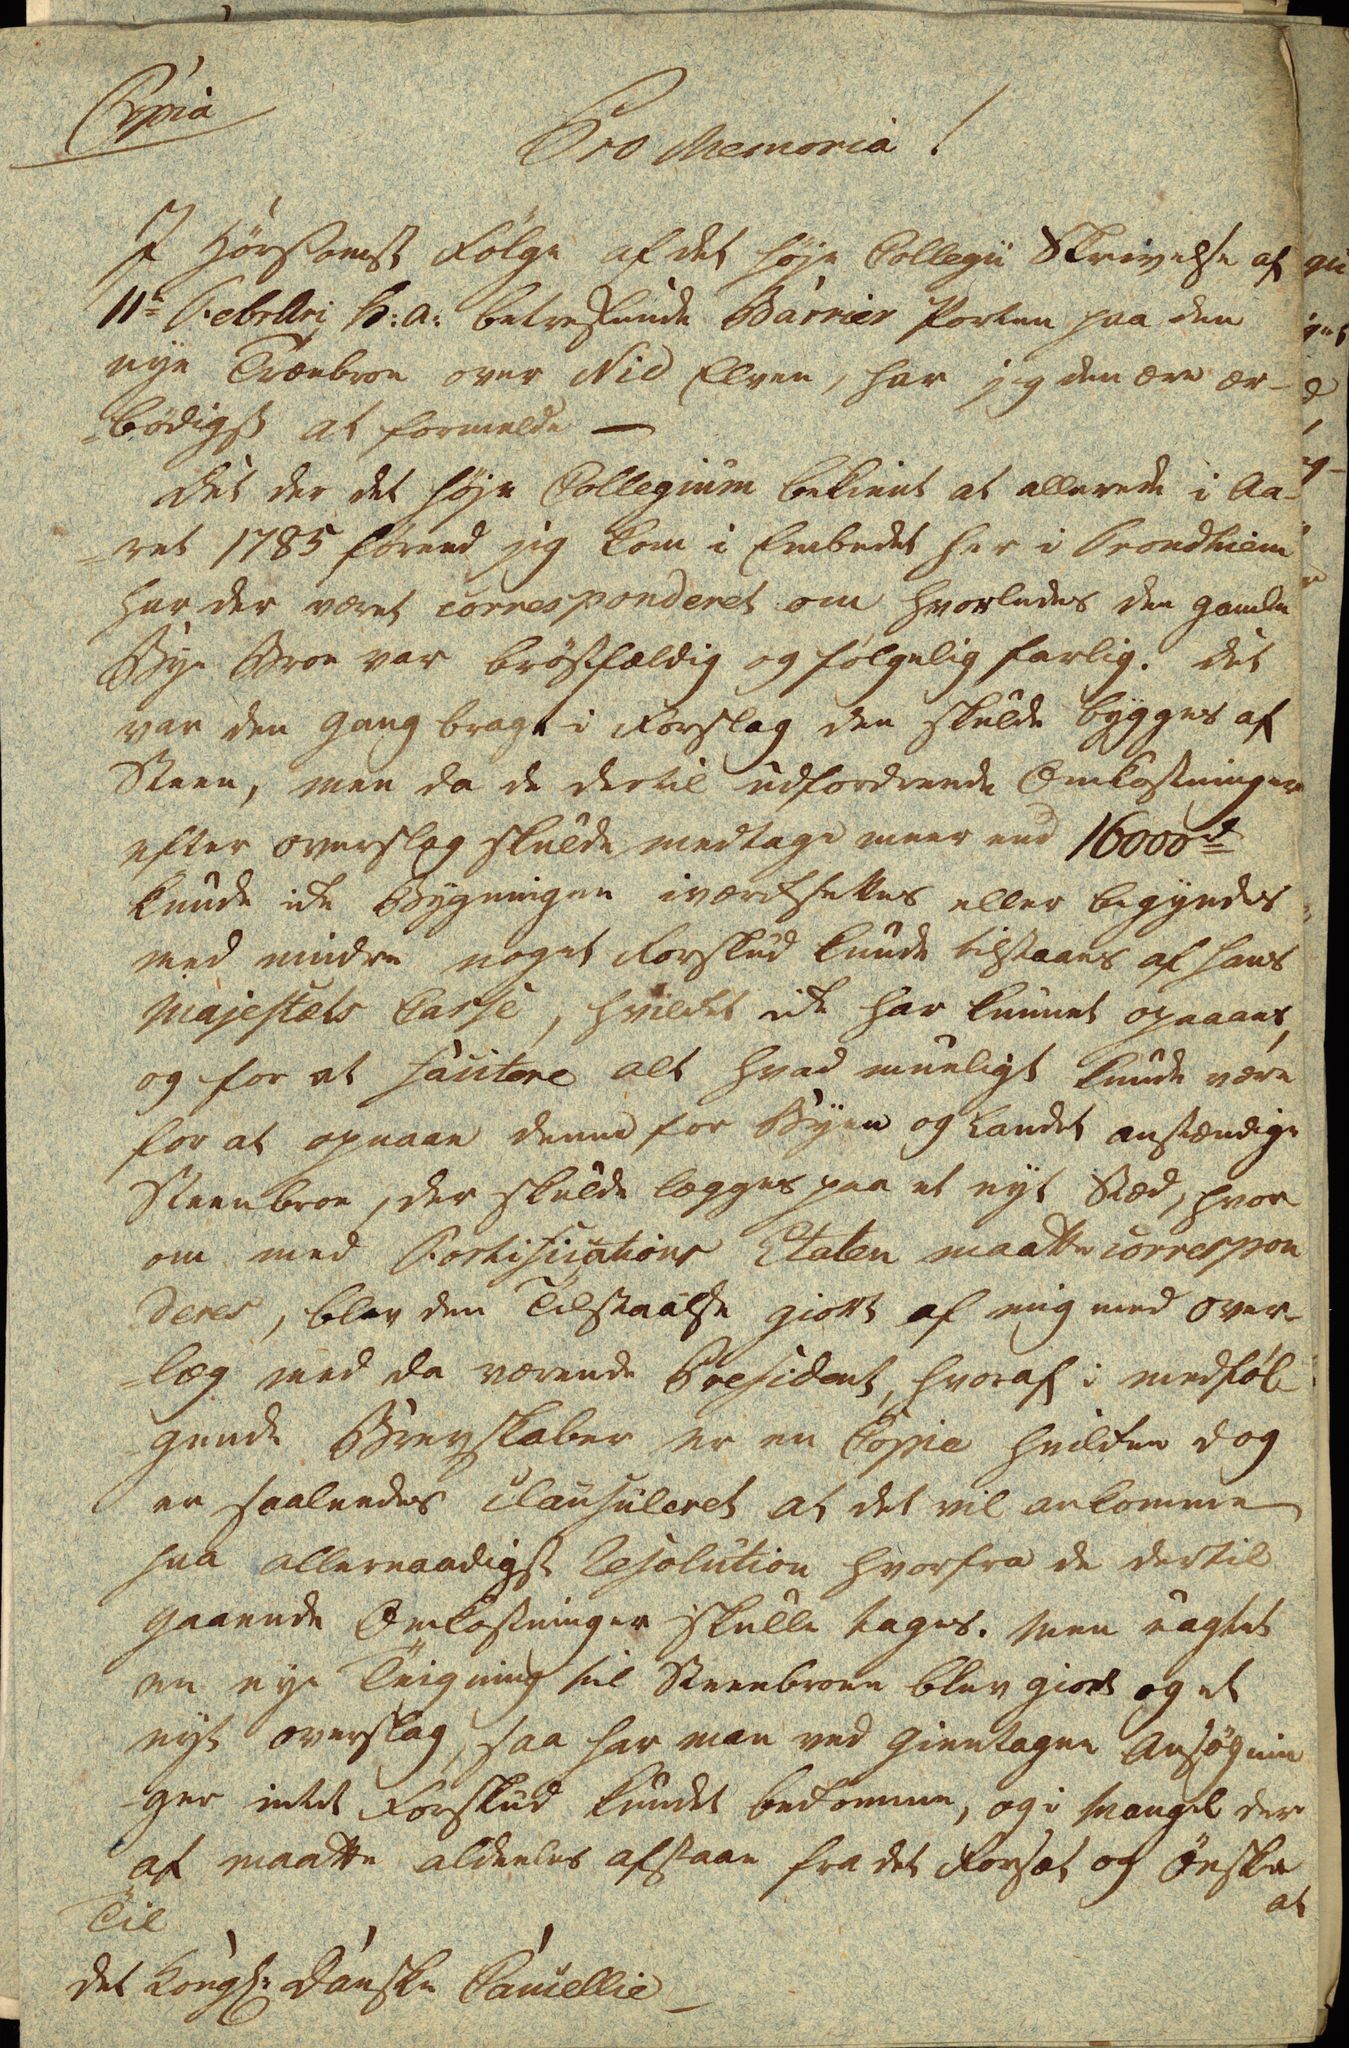 Copia
Pro Memoria!
I Hørsomst Følge af det høje Collegii Skrivelse af
11te Febrari h: a: betreffende Barrier Porten paa den
nye Træebroe over Nid Elven, har jeg den ære ær-
-bødigst at formelde —
Det der det høje Collegium bekient at allerede i Aa-
-ret 1785 førend jeg kom i Embedet her i Trondhiem
har der været corresponderet om hvorledes den gamle
Bye Broe var brøstfældig og følgelig farlig. det
var den gang bragt i Forslag den skulde bygges af
Steen, men da de dertil udfordrende Omkostninger
efter overslag skulde medtage meer end 16000rd
kunde ike Bygningen iværksettes eller begyndes
med mindre noget Forskud kunde tilstaaes af Hans
Majestæts Casse, hvilket ike har kunnet opnaaes,
og for at facitere alt hvad mueligt kunde være
for at opnaae denne for Byen og Landet anstændige
Steenbroe, der skulde lægges paa et nyt Stæd, hvor
om med Fortifications Etaten maatte correspon
deres, blev den Tilstaaelse giort af mig med over-
-læg med da værende President, hvoraf i medføl-
-gende Brevskaber er en Copie hvilken dog
er saaledes clausuleret at det vil ankomme
paa allernaadigst Resolution hvorfra de dertil
gaaende Omkostninger skulle tages. Men uagtet
en nye Teigning til Steenbroen blev giort og et
nyt overslag, saa har man ved gientagne Ansøgnin
-ger intet Forskud kundet bekomme, og i Mangel der
af maatte aldeeles afstaae fra det Forsæt og Ønske
at
Til
det Kongl: Danske Cancellie